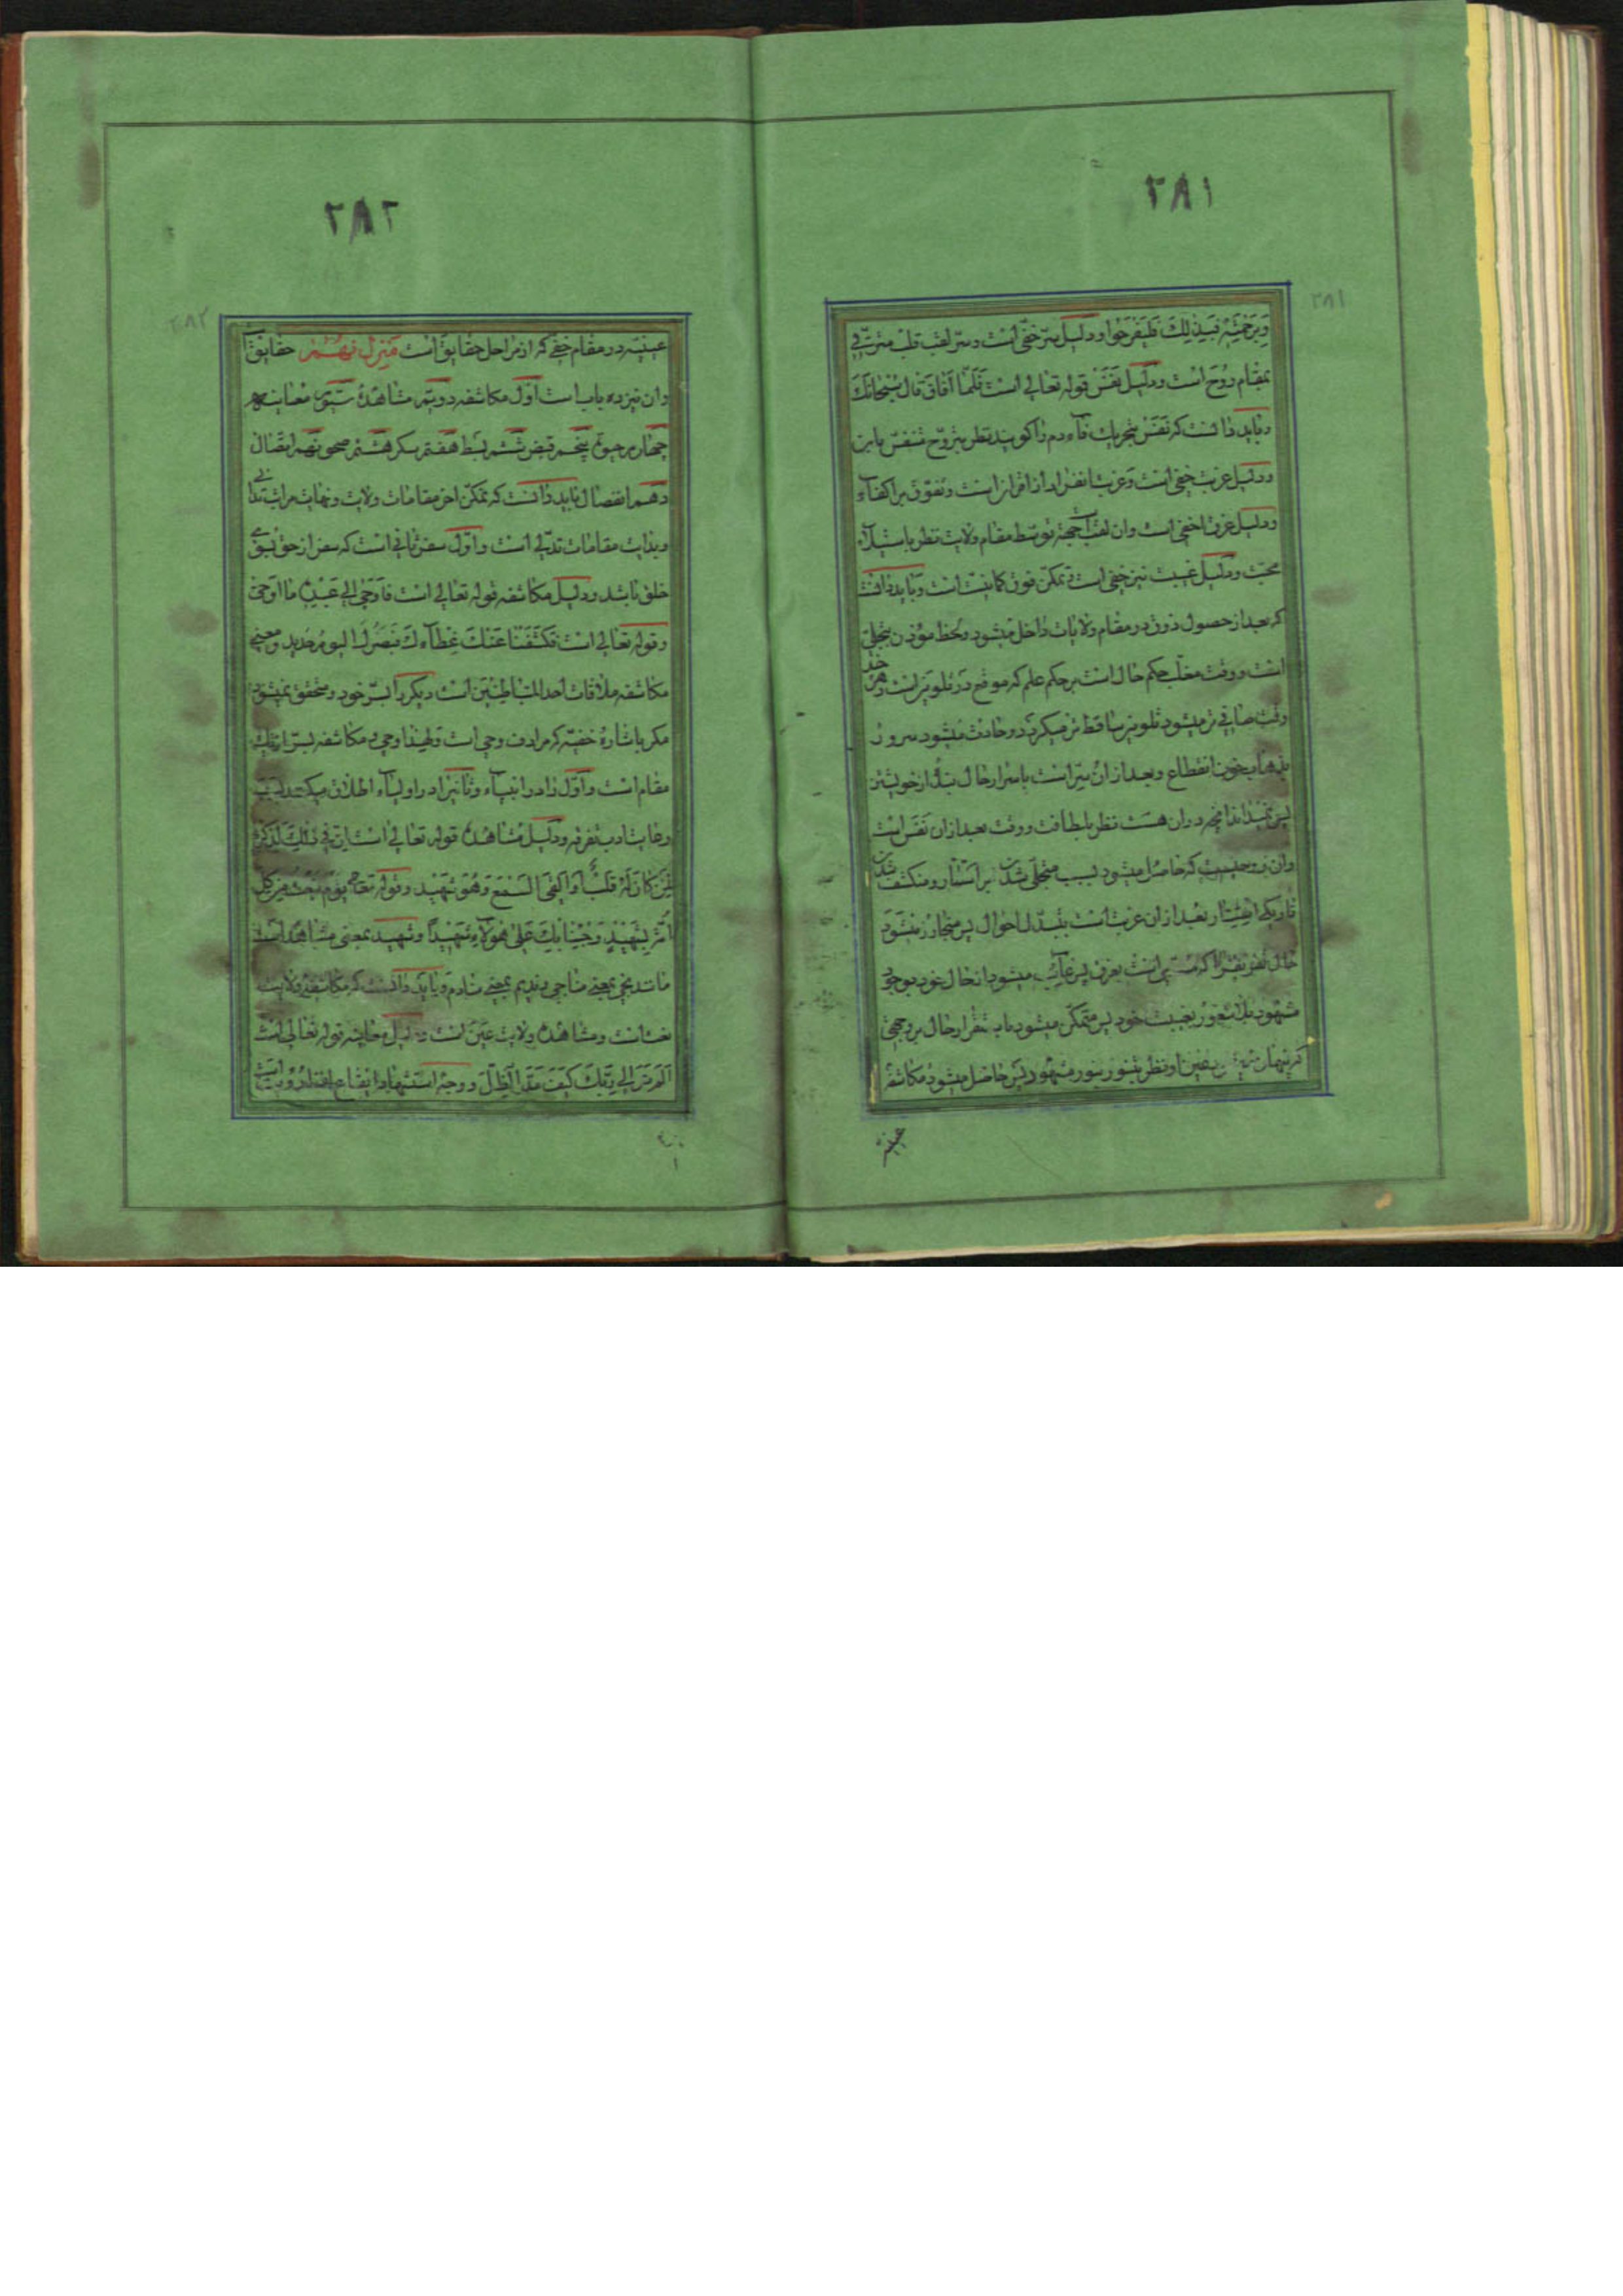 ۲۸۱
۲۸۱
وبرحمته فبذلك فليفرحوا ودلیل سرّ خفی است وسرّ لقب قلب مترقّی
بمقام روح است ودلیل نفس قوله تعالی است فلمّا افاق قال سبحانك
وبايد دانست كه نفس بتحريك فاء دم را كويند نظر بتروّح متنفس باین
ودلیل غربت خفی است وغربت انفراد از اقران است وتفوّق بر اكفاء
ودلیل غرق اخفی است وان لقب توسّط مقام ولایت نظر باستیلاء
محبّت ودلیل غیبت نیز خفی است تمكّن فوق است وباید دانست
كه بعد از حصول ذوق در مقام ولایات داخل میشود ولحظ مؤذن بتجلّی
است ووقت مغلّب حكم حال است بر حكم علم كه موقع در تلوین است
وقت صافی تر میشود تلوین ساقط تر میكردد وحادث میشود سرور
بذهاب خوف انقطاع وبعد از ان سرّ است باسرار حال از خویشتن
پس نمیداند انچه در ان هست نظر بلطافت ووقت بعد از ان نفس است
وان تروحیست كه حاصل میشود بسبب متجلّی شدن سر استتار ومنكشف شدن
تاریكی استتار بعد از ان غربت است بتبدّل احوال پس متجاوز میشود
حال است بغرق پس غایب میشود از حال خود بوجود
مشهود بلا شعور بغیبت خود پس متمكّن میشود باستقرار حال بر وجهی
نظر بتنوّر بنور مشهود پس حاصل میشود مكاشفه
عینیّه
۲۸۲
۲۸۲
عینیّه در مقام خفی كه از مراحل حقایق است منزل نهم حقایق
وان نیز ده باب است اوّل مكاشفه دویّم مشاهده سیّوم معاینه
چهارم حیوة پنجم قبض ششم بسط هفتم سكر هشتم صحو نهم اتّصال
دهم انفصال باید دانست كه تمكّن اخر مقامات ولایت ونهایت مراتب
وبدایت مقامات تدلّی است واوّل سفر ثانی است كه سفر از حق بسوی
خلق باشد ودلیل مكاشفه قوله تعالی است فاوحی الی عبده ما اوحی
وقوله تعالی است فكشفنا عنك غطاءك فبصرك الیوم حدید ومعنی
مكاشفه ملاقات احد المتباطنین است دیكر را بسرّ خود ومتحقق نمیشود
مكر باشاره خفیّه كه مرادف وحی است ولهذا وحی ومكاشفه
مقام است واوّل را در انبیاء وثانی را در اولیاء اطلاق میكنند
رعایت ادب بتفرقه ودلیل مشاهده قوله تعالی است انّ فی ذلك لذكری
لمن كان له قلب او القی السمع وهو شهید وقوله تعالی یوم نبعث من كلّ
امّة بشهید وجئنا بك علی هؤلاء شهیدا وشهید بمعنی مشاهد است
مانند نجی بمعنی مناجی وندیم بمعنی منادم وباید دانست كه مكاشفه ولایت
نعت است ومشاهده ولایت عین است ودلیل معاینه قوله تعالی است
الم تر الی ربّك كیف مدّ الظّلّ ووجه استشهاد ایقاع رؤیت است